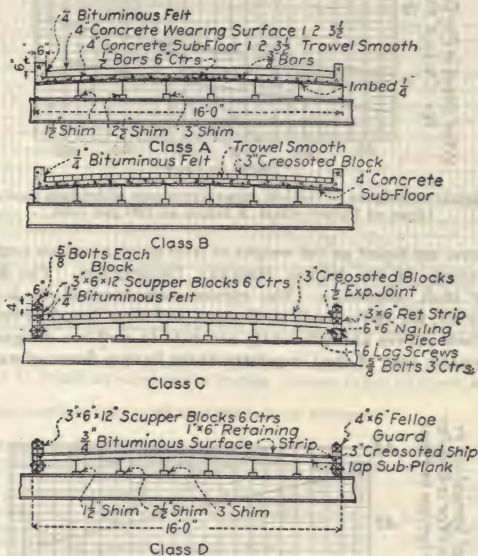 1/4" Bituminous Felt
4" Concrete Wearing Surface 1 2 3 1/2
4" Concrete Sub-Floor 1 2 3 1/2 Trowel Smooth
Bars 6" Ctrs
3/8" Bars
6"
6"
Imbed 1/4"
16'-0"
1 1/2" Shim 2 1/2" Shim 3" Shim
Class A
Trowel Smooth
1/4" Bituminous Felt
3" Creosoted Block
4" Concrete
Sub-Floor
Class B
5/8" Bolts Each
Block
6"
3"×6"×12" Scupper Blocks 6 Ctrs
4"
1/4" Bituminous Felt
3" Creosoted Blocks
1/2" Exp. Joint
3"×6" Ret Strip
6"×6" Nailing
Piece
6 Lag Screws
5/8" Bolts 3 Ctrs.
Class C
3"×6"×12" Scupper Blocks 6 Ctrs
1"×6" Retaining
Strip
3/4" Bituminous Surface
4"×6" Felloe
Guard
3" Creosoted Ship
lap Sub-Plank
1 1/2" Shim 2 1/2" Shim 3" Shim
16'-0"
Class D